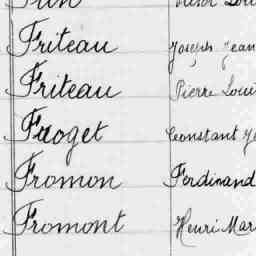 Friteau Joseph Jean
Friteau Pierre Loui
Froget Constant
Fromon Ferdinand
Fromont Henri Mar